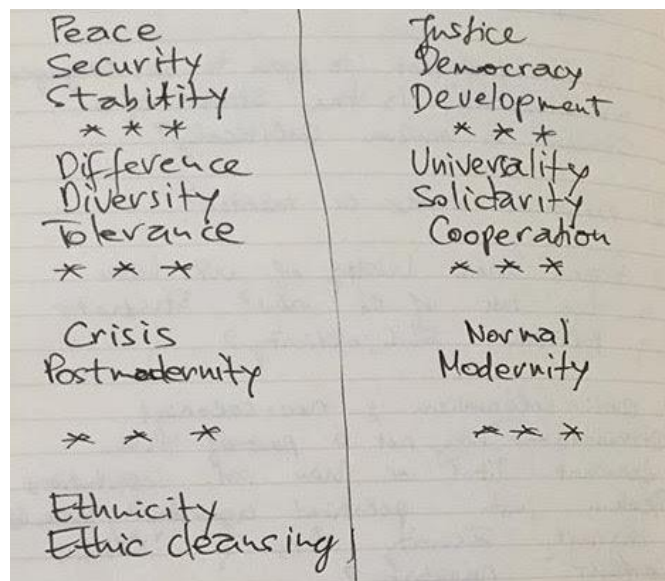 Peace
Security
Stability
* * *
Difference
Diversity
Tolerance
* * *
Crisis
Postmodernity
* * *
Ethnicity
Ethic cleansing
Justice
Democracy
Development
* * *
Universality
Solidarity
Cooperation
* * *
Normal
Modernity
* * *